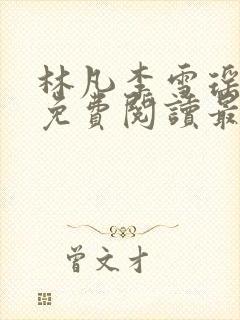 林凡李雪瑶
免費閱讀最
曾文才